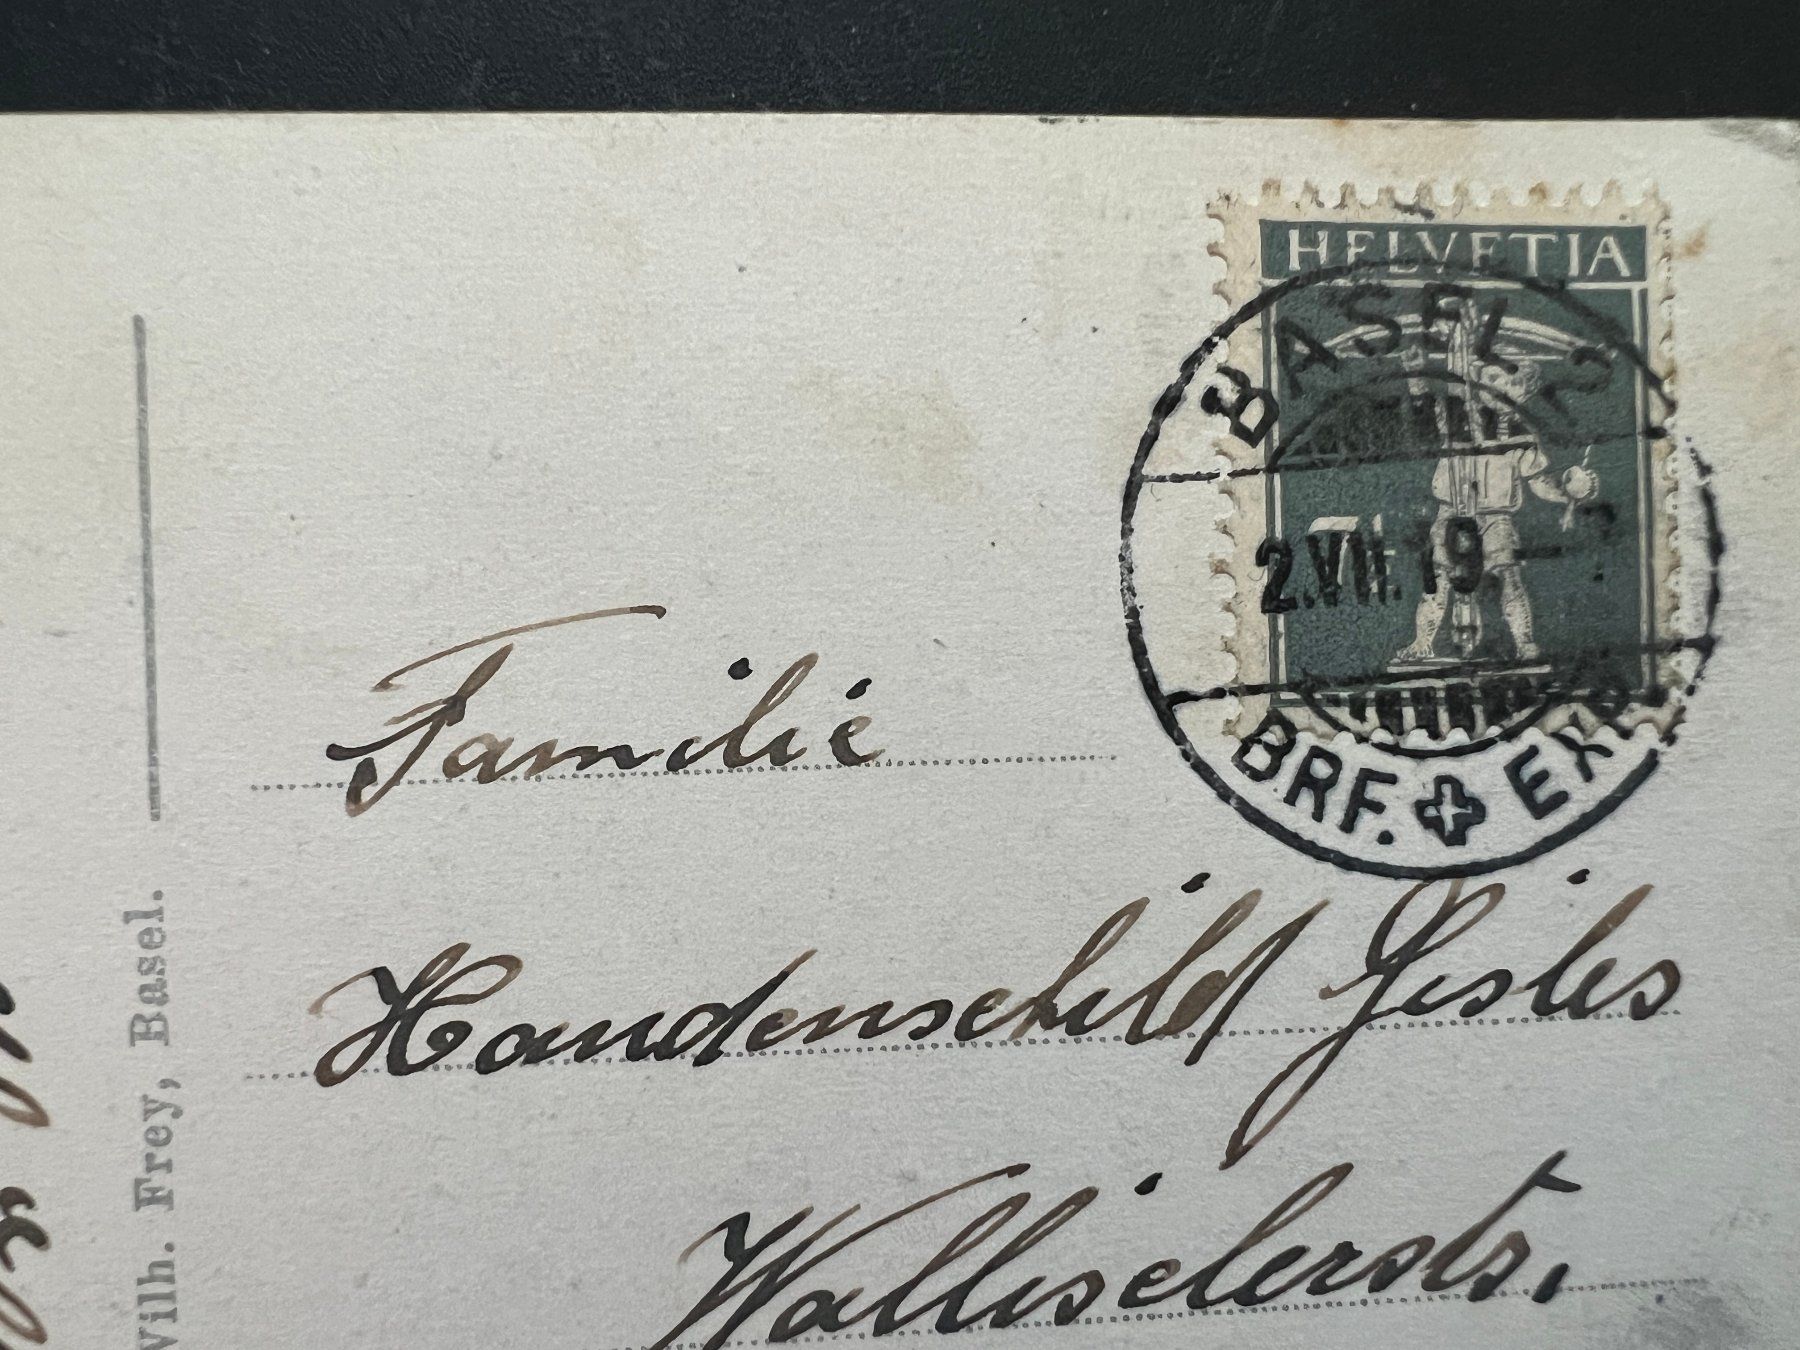 HELVETIA
BASEL 2
2.VII.19.–
BRF. EXP.
Familie
Handenschild Gisler
Walliselerstr.
Wilh. Frey, Basel.